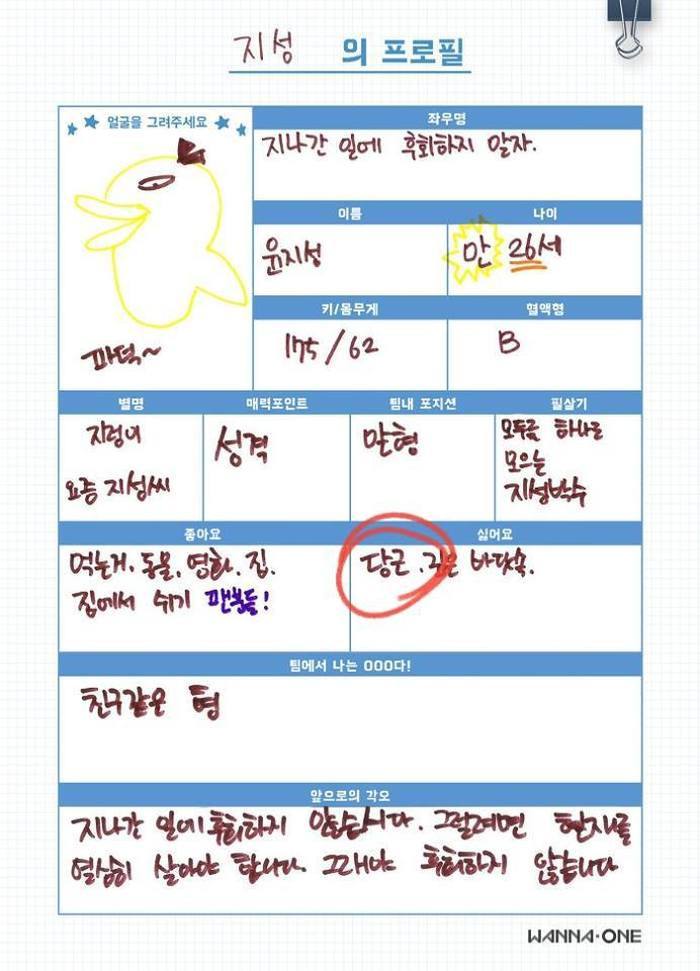 지성 의 프로필
얼굴을 그려주세요
파덕~
좌우명
지나간 일에 후회하지 말자.
이름
윤지성
나이
만 26세
키/몸무게
175/62
혈액형
B
별명
지렁이
요즘 지성씨
매력포인트
성격
팀내 포지션
맏형
필살기
모두를 하나로
모으는
지성박수
좋아요
먹는거, 동물, 영화, 집,
집에서 쉬기 팬분들!
싫어요
당근, 깊은 바닷속.
팀에서 나는 OOO다!
친구같은 형
앞으로의 각오
지나간 일에 후회하지 않습시다. 그럴려면 현재를
열심히 살아야 합니다. 그래야 후회하지 않습니다
WANNA·ONE